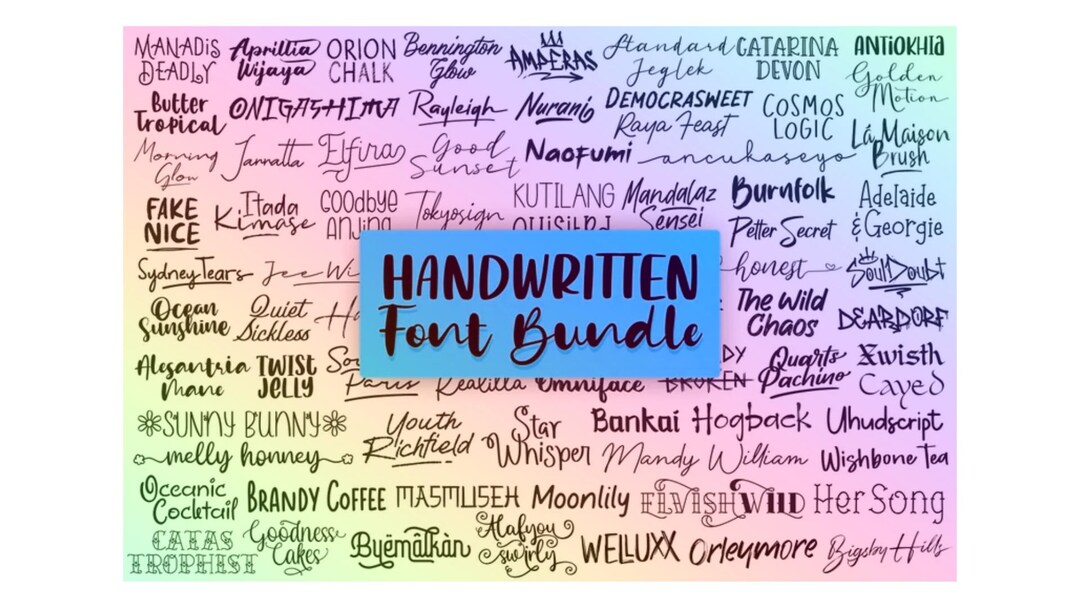 MANADIS DEADLY
Aprillia Wijaya
ORION CHALK
Bennington Glow
AMPERAS
Standard Jeglek
CATARINA DEVON
ANTIOKHIA
Golden Motion
Butter Tropical
ONIGASHIMA
Rayleigh
Nurani
DEMOCRASWEET
Raya Feast
COSMOS LOGIC
La Maison Brush
Morning Glow
Jannatta
Elfira
Good Sunset
Naofumi
ancukaseyo
FAKE NICE
Itada Kimase
Goodbye Anjing
Tokyosign
KUTILANG
Mandalaz Sensei
Burnfolk
Petter Secret
Adelaide & Georgie
HANDWRITTEN
Font Bundle
Sydney Tears
Jee Wi
honest
Soul Doubt
Ocean Sunshine
Quiet Sickless
The Wild Chaos
DEARDORF
Alesantria Mane
TWIST JELLY
Paris
Realilla
Omniface
BROKEN
Quarts Pachino
Xwisth Cayed
SUNNY BUNNY
melly honney
Youth Richfield
Star Whisper
Bankai
Hogback
Uhudscript
Mandy William
Wishbone Tea
Oceanic Cocktail
BRANDY COFFEE
MASMUSEH
Moonlily
ELVISH WILD
Her Song
CATAS TROPHIST
Goodness Cakes
Byëmälkàn
Alafyou swirly
WELLUXX
Orleymore
Bigsby Hills